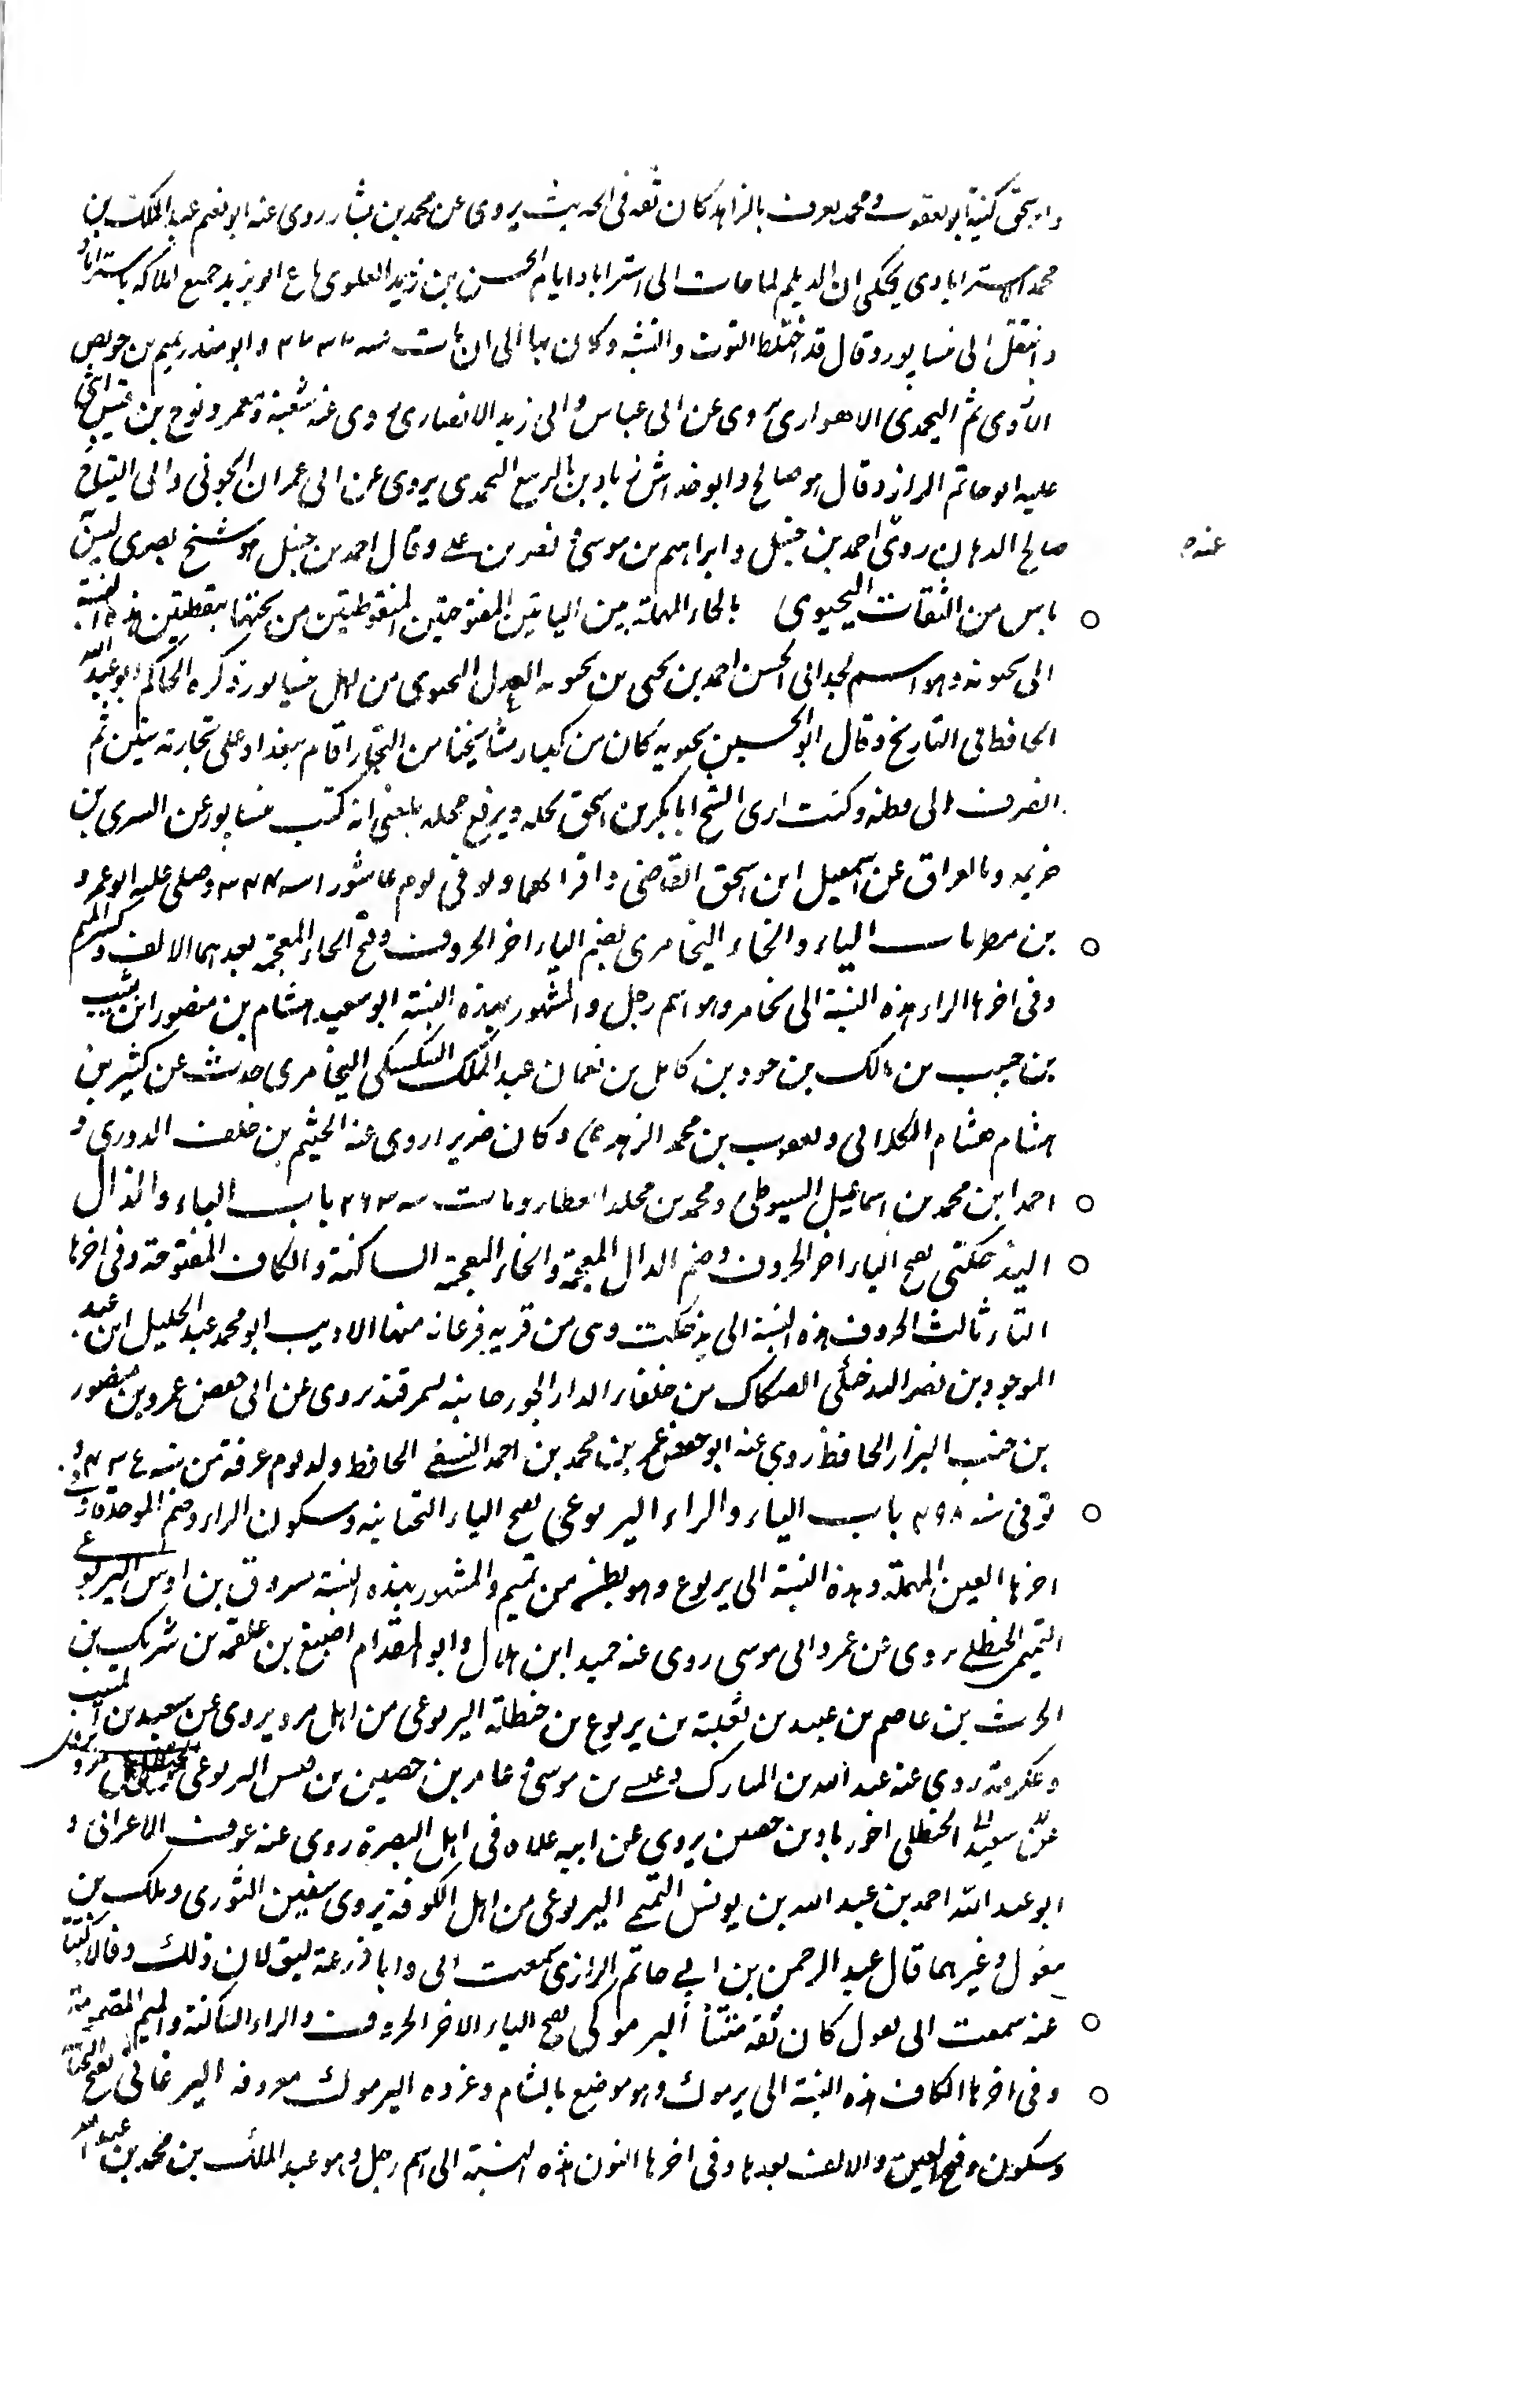 واسحق كنيته ابو يعقوب ومحمد يعرف بالزاهد كان ثقه فى الحديث يروى عن محمد بن بشار روى عنه ابو نعيم عبد الملك بن
محمد الاستراباذى يحكى ان الديلم لما جات الى استراباد ايام الحسن بن زيد العلوى باع ابو يزيد جميع املاكه باستراباد
وانتقل الى نيسابور وقال قد اختلط القوت والشبه وكان بها الى ان مات سنه وابو منذر تميم بن حويص
الازدى ثم اليحمدى الاهوازى روى عن ابى عباس وابى زيد الانصارى روى عنه شعبة ومعمر ونوح بن قيس
عليه ابو حاتم الراز وقال هو صالح وابو خداش زياد بن الربيع اليحمدى يروى عن ابى عمران الجونى وابى التياح
صالح الدهان روى احمد بن حنبل وابراهيم بن موسى ونصر بن على وقال احمد بن حنبل هو شيخ بصرى ليس
عنه
باس من الثقات اليحيوى بالحاء المهملة بين اليائين المفتوحتين المنقوطتين من تحتها بنقطتين هذه النسبة
الى يحيويه وهو اسم لجد ابى الحسن احمد بن يحيى بن يحيويه العدل اليحيوى من اهل نيسابور ذكره الحاكم ابو عبد الله
الحافظ فى التاريخ وقال ابو الحسين يحيويه كان من كبار مشايخنا من التجار اقام ببغداد على تجارته سنين ثم
انصرف الى وطنه وكنت ارى الشيخ ابا بكر بن اسحق يجله ويرفع محله بلغنى انه كتب نيسابور عن السرى بن
خزيمه وبالعراق عن اسمعيل ابن اسحق القاضى واقرانهما وتوفى يوم عاشورا سنه وصلى عليه ابو عمرو
بن مطر باب الياء والخاء اليخامرى بضم الياء اخر الحروف وفتح الخاء المعجمة بعدهما الالف وكسر الميم
وفى اخرها الراء هذه النسبة الى يخامر وهو اسم رجل والمشهور بهذه النسبة ابو سعيد هشام بن منصور ابن شبيب
بن حبيب بن مالك بن حود بن كامل بن نعمان عبد الملك السكسكى اليخامرى حدث عن كثير بن
هشام هشام الكلابى ويعقوب بن محمد الزهرى وكان ضريرا روى عنه الحيثم بن خلف الدورى و
احمد ابن محمد بن اسماعيل السيوطى ومحمد بن مخلد العطار ومات سنه ٢٦٣ باب الياء والذال
اليذخكتى بفتح الياء اخر الحروف وضم الدال المعجمة والخاء المعجمة الساكنة والكاف المفتوحة وفى اخرها
التاء ثالث الحروف هذه النسبة الى يذخكت وهى من قريه فرغانه منها الاديب ابو محمد عبد الجليل ابن عبد
الموجود بن نصر اليذخكتى الصكاك من خلفاء الدار الجورجانيه بسمرقند يروى عن ابى حفص عمرو بن منصور
بن خنب البزار الحافظ روى عنه ابو حفص عمر بن محمد بن احمد النسفى الحافظ ولد يوم عرفة من سنه
توفى سنه ٤٩٨ باب الياء والراء اليربوعى بفتح الياء التحتانيه وسكون الراء وضم الموحدة وفى
اخرها العين المهملة وهذه النسبة الى يربوع وهو بطن من تميم والمشهور بهذه النسبة مسروق بن اوس اليربوعى
التميمى الحنظلى يروى عن عمر وابى موسى روى عنه حميد ابن هلال وابو المقدام اصبغ بن علقمه بن شريك بن
الحرث بن عاصم بن عبيد بن ثعلبة بن يربوع بن حنظلة اليربوعى من اهل مرو يروى عن سعيد بن المسيب
وعكرمة روى عنه عبد الله بن المبارك وعيسى بن موسى وعامر بن حصين بن قيس اليربوعى
عن سعيد الحنظلى اخو زياد بن حصين يروى عن ابيه عداده فى اهل البصرة روى عنه عوف الاعرابى و
ابو عبد الله احمد بن عبد الله بن يونس التميمى اليربوعى من اهل الكوفة يروى سفين الثورى وملك بن
مغول وغيرهما قال عبد الرحمن بن ابى حاتم الرازى سمعت ابى وابا زرعة يقولان ذلك وقالا كتبنا
عنه سمعت ابى يقول كان ثقة متقنا اليرموكى بفتح الياء الاخر الحروف والراء الساكنة والميم المضمومة
وفى اخرها الكاف هذه النسبة الى يرموك وهو موضع بالشام وغزوه اليرموك معروفه اليرغانى بفتح التحتانية
وسكون وفتح الغين والالف بعدها وفى اخرها النون هذه النسبة الى اسم رجل وهو عبد الملك بن محمد بن عبد الله